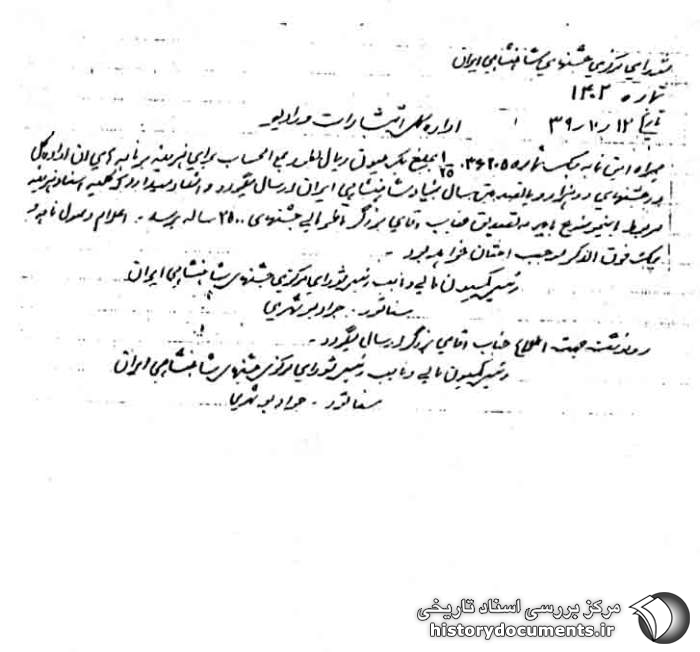 شورای مرکزی جشنهای شاهنشاهی ایران
شماره ۱۴۰۲
تاریخ ۱۲ر۱۰ر۳۹
اداره کل انتشارات و رادیو
همراه این نامه چک شماره مبلغ یک میلیون ریال بطور علی الحساب برای هزینه برنامه های آن اداره کل
در جشنهای دو هزار و پانصدمین سال بنیاد شاهنشاهی ایران ارسال میگردد و انتظار میدارد که کلیه اسناد هزینه
مربوط باین موضوع باید به تصدیق جناب آقای بزرگ اجرائی جشنهای ۲۵۰۰ ساله برسد - اعلام وصول نامه و
چک فوق الذکر موجب امتنان خواهد بود -
رئیس کمیسیون مالی و نایب رئیس شورای مرکزی جشنهای شاهنشاهی ایران
سناتور - جواد بوشهری
رونوشت جهت اطلاع جناب آقای بزرگ ارسال میگردد -
رئیس کمیسیون مالی و نایب رئیس شورای مرکزی جشنهای شاهنشاهی ایران
سناتور - جواد بوشهری
مرکز بررسی اسناد تاریخی
historydocuments.ir